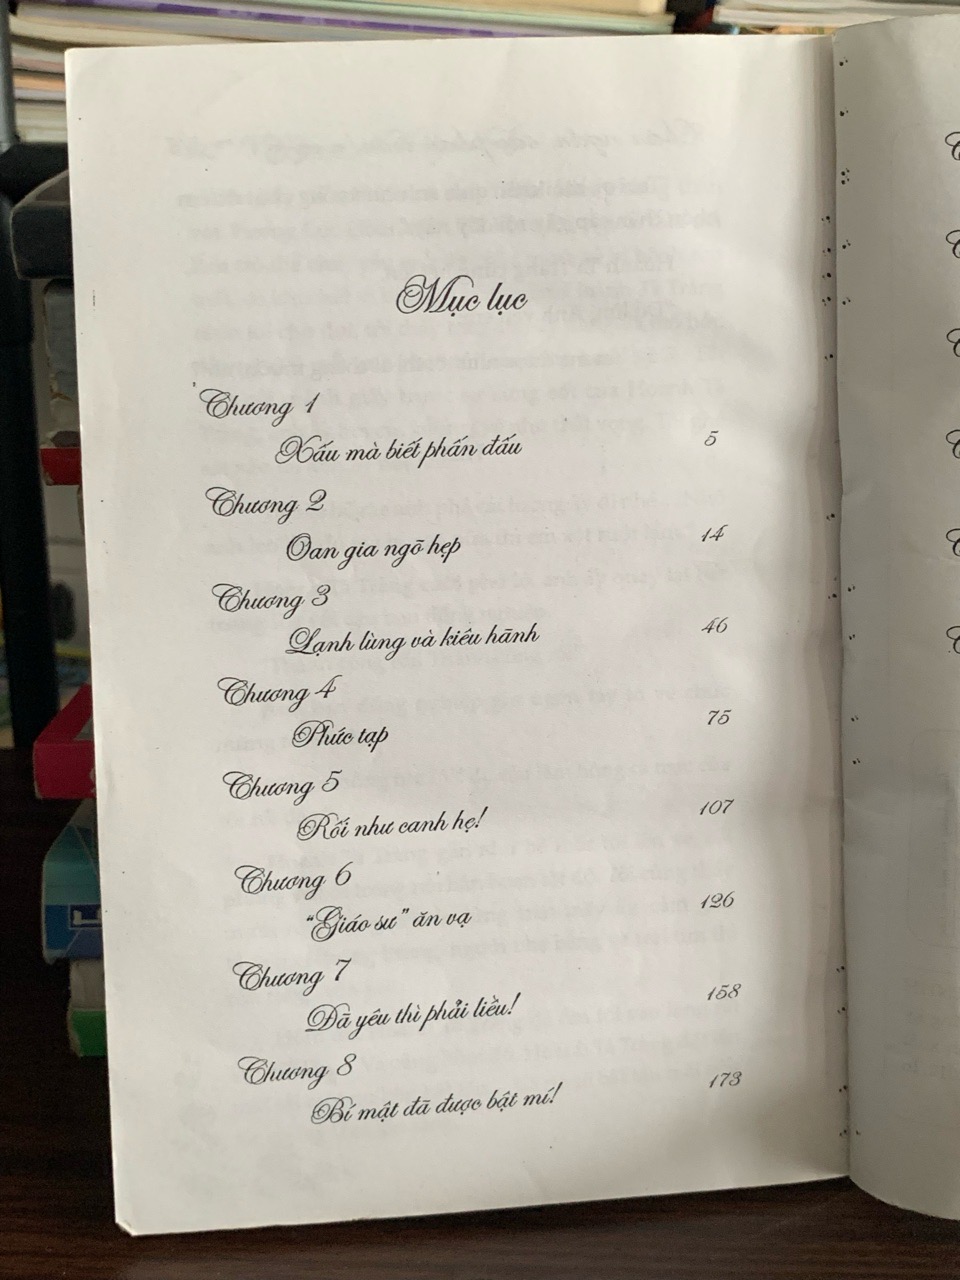 Mục lục
Chương 1
Xấu mà biết phấn đấu 5
Chương 2
Oan gia ngõ hẹp 14
Chương 3
Lạnh lùng và kiêu hãnh 46
Chương 4
Phức tạp 75
Chương 5
Rối như canh hẹ! 107
Chương 6
"Giáo sư" ăn vạ 126
Chương 7
Đã yêu thì phải liều! 158
Chương 8
Bí mật đã được bật mí! 173